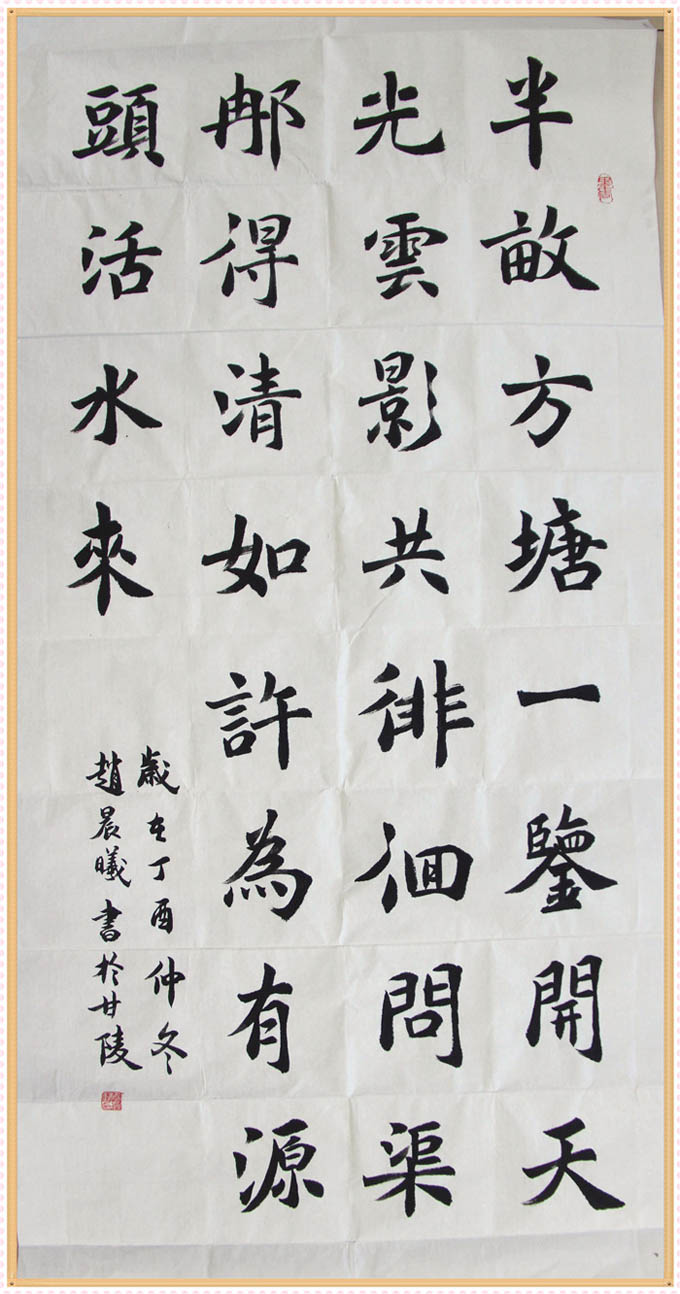 半畝方塘一鑒開天
光雲影共徘徊問渠
那得清如許為有源
頭活水來
歲在丁酉仲冬
趙晨曦書於甘陵